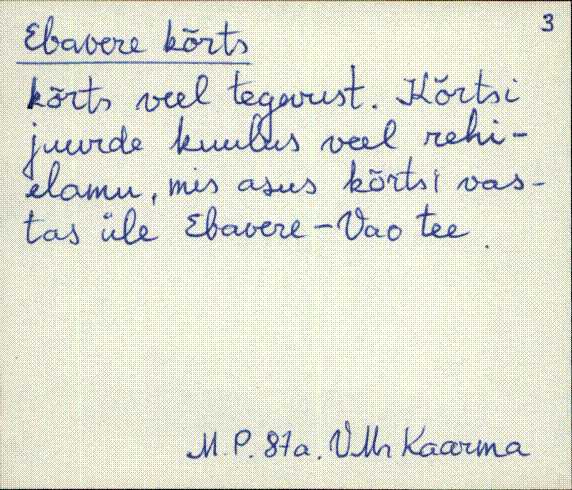 3
Ebavere kõrts
kõrts veel tegevust. Kõrtsi
juurde kuulus veel rehi-
elamu, mis asus kõrtsi vas-
tas üle Ebavere-Vao tee.
M. P. 87a. VMr Kaarma